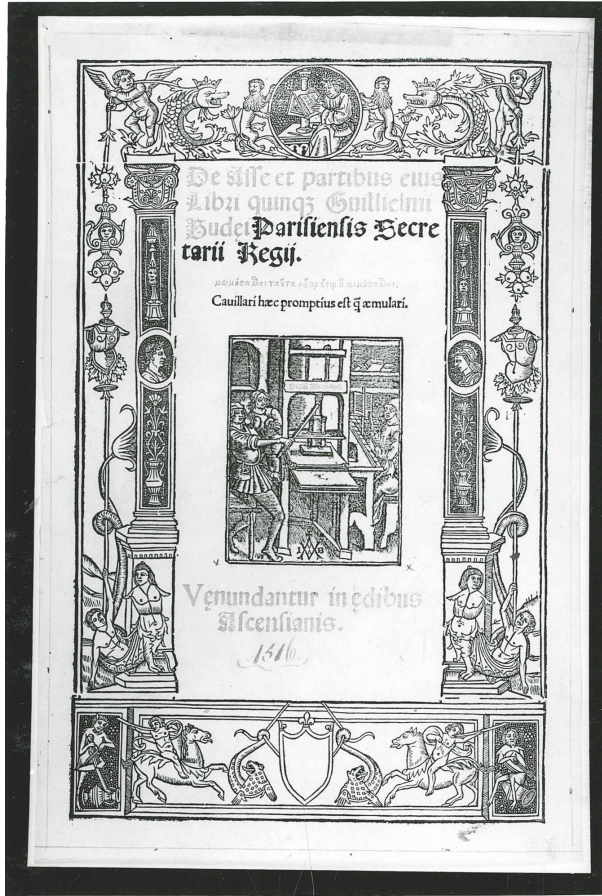 De Asse et partibus eius
Libri quinqꝫ Guillielmi
Budei Parisiensis Secre
tarii Regij.
Cauillari hæc promptius est q̃ æmulari.
Vęnundantur in ędibus
Ascensianis.
1516